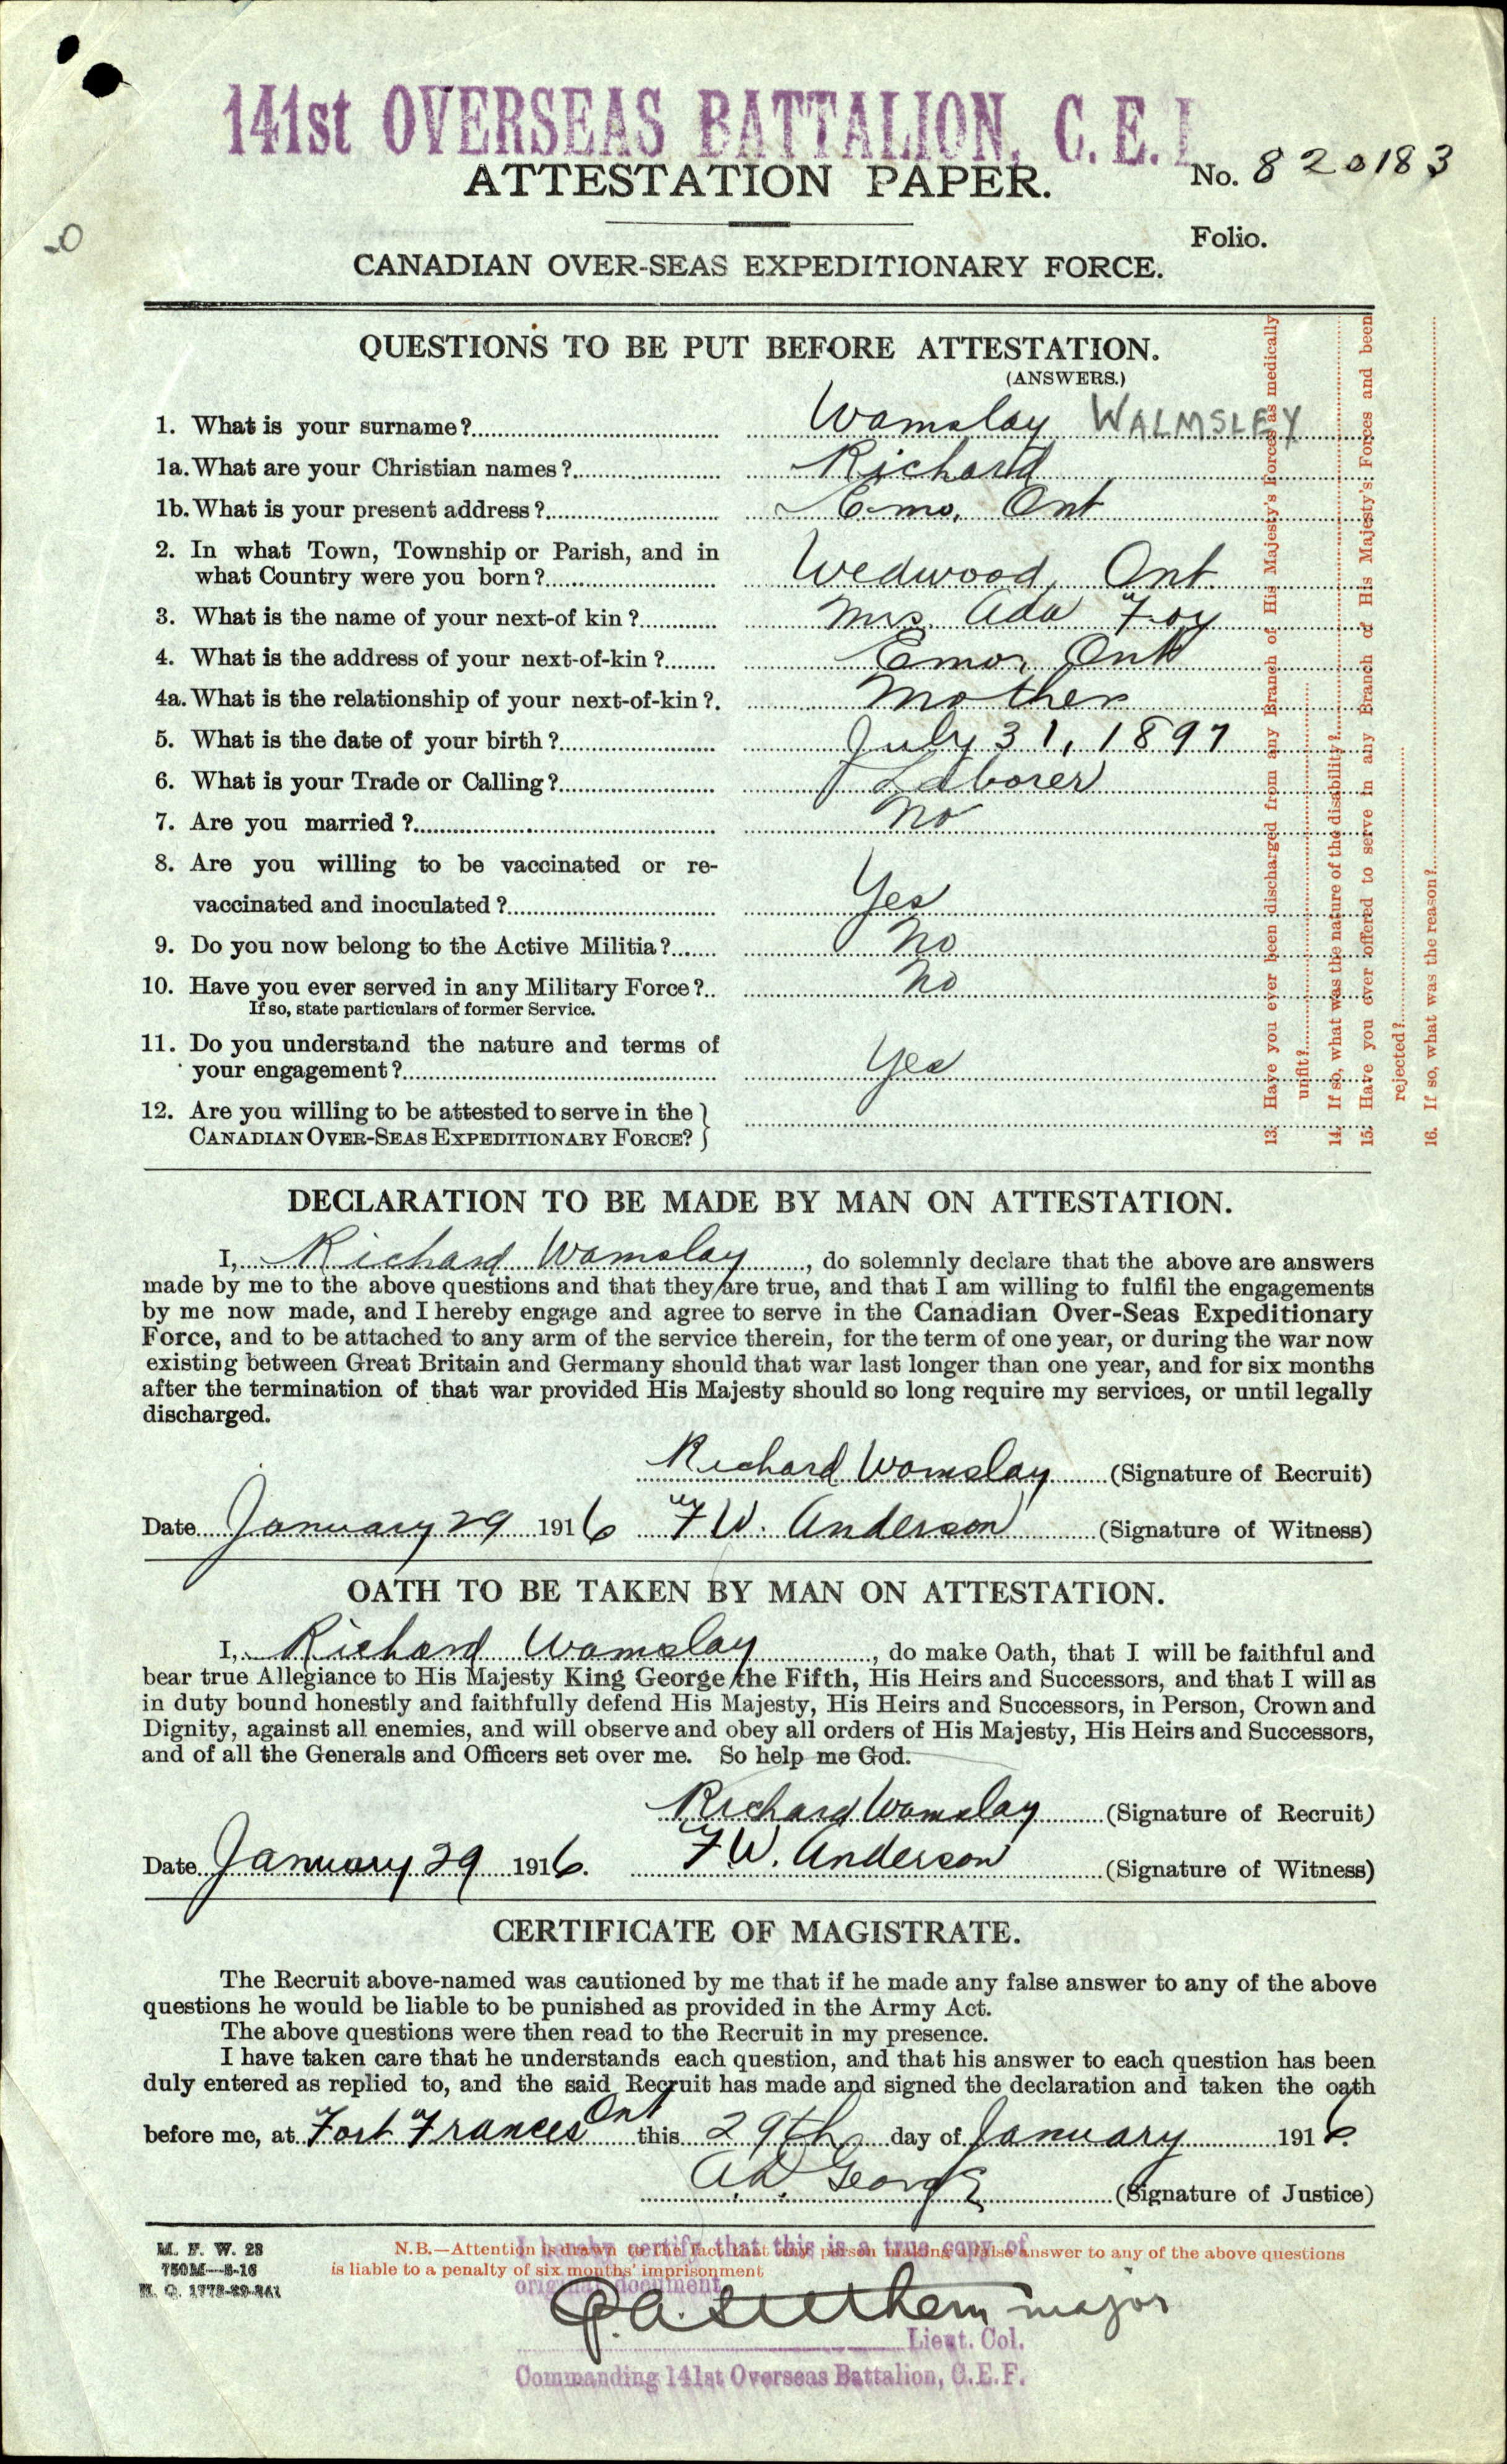 141st OVERSEAS BATTALION, C. E. F
ATTESTATION PAPER.
No. 820183
Folio.
CANADIAN OVER-SEAS EXPEDITIONARY FORCE.
QUESTIONS TO BE PUT BEFORE ATTESTATION.
(ANSWERS.)
1. What is your surname?  Wamslay WALMSLEY
1a. What are your Christian names?  Richard
1b. What is your present address?  Emo, Ont
2. In what Town, Township or Parish, and in
what Country were you born?  Wedwood, Ont.
3. What is the name of your next-of kin?  Mrs. Ada Foy
4. What is the address of your next-of-kin?  Emo, Ont
4a. What is the relationship of your next-of-kin?.  Mother
5. What is the date of your birth?  July 31, 1897
6. What is your Trade or Calling?  Laborer
7. Are you married?  No
8. Are you willing to be vaccinated or re-
vaccinated and inoculated?  Yes
9. Do you now belong to the Active Militia?  No
10. Have you ever served in any Military Force?..  No
If so, state particulars of former Service.
11. Do you understand the nature and terms of
your engagement?  Yes
12. Are you willing to be attested to serve in the
CANADIAN OVER-SEAS EXPEDITIONARY FORCE?
13. Have you ever been discharged from any Branch of His Majesty's Forces as medically
unfit?
14. If so, what was the nature of the disability?
15. Have you ever offered to serve in any Branch of His Majesty's Forces and been
rejected?
16. If so, what was the reason?
DECLARATION TO BE MADE BY MAN ON ATTESTATION.
I, Richard Wamslay, do solemnly declare that the above are answers
made by me to the above questions and that they are true, and that I am willing to fulfil the engagements
by me now made, and I hereby engage and agree to serve in the Canadian Over-Seas Expeditionary
Force, and to be attached to any arm of the service therein, for the term of one year, or during the war now
existing between Great Britain and Germany should that war last longer than one year, and for six months
after the termination of that war provided His Majesty should so long require my services, or until legally
discharged.
Richard Wamslay (Signature of Recruit)
Date January 29 1916 F W. Anderson (Signature of Witness)
OATH TO BE TAKEN BY MAN ON ATTESTATION.
I, Richard Wamslay, do make Oath, that I will be faithful and
bear true Allegiance to His Majesty King George the Fifth, His Heirs and Successors, and that I will as
in duty bound honestly and faithfully defend His Majesty, His Heirs and Successors, in Person, Crown and
Dignity, against all enemies, and will observe and obey all orders of His Majesty, His Heirs and Successors,
and of all the Generals and Officers set over me. So help me God.
Richard Wamslay (Signature of Recruit)
Date January 29 1916. F W. Anderson (Signature of Witness)
CERTIFICATE OF MAGISTRATE.
The Recruit above-named was cautioned by me that if he made any false answer to any of the above
questions he would be liable to be punished as provided in the Army Act.
The above questions were then read to the Recruit in my presence.
I have taken care that he understands each question, and that his answer to each question has been
duly entered as replied to, and the said Recruit has made and signed the declaration and taken the oath
before me, at Fort Frances Ont this 29th day of January 1916.
A.D. George (Signature of Justice)
M. F. W. 23
750M—8-16
H. Q. 1772-39-841
N.B.—Attention is drawn to the fact that any person making a false answer to any of the above questions
is liable to a penalty of six months' imprisonment
I hereby certify that this is a true copy of
original document.
major
Lieut. Col.
Commanding 141st Overseas Battalion, C.E.F.